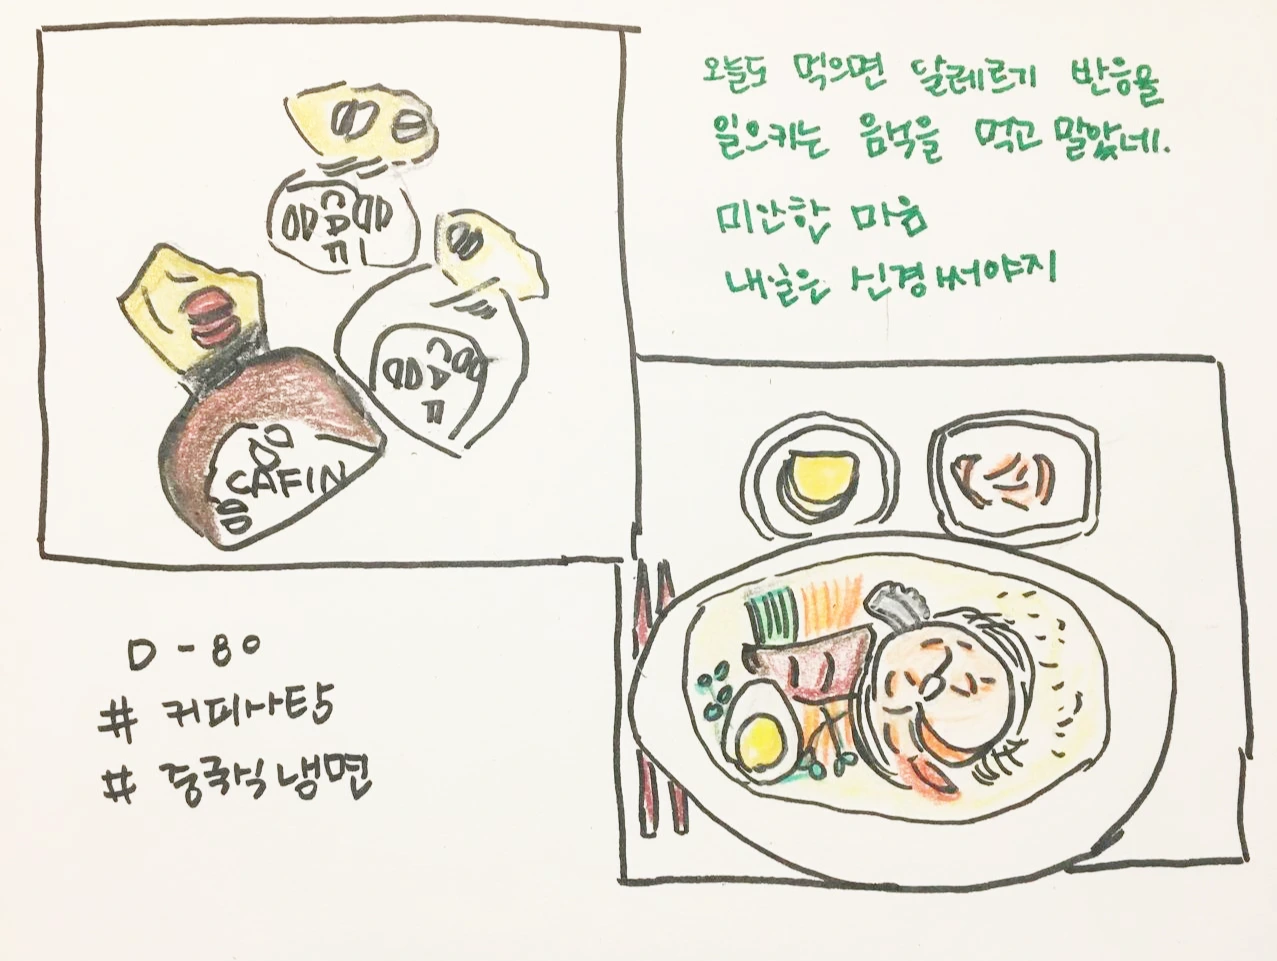 오늘도 먹으면 달레르기 반응을
일으키는 음식을 먹고 말았네.
미안한 마음
내일은 신경써야지
CAFIN
D-80
# 커피사탕
# 중국식 냉면